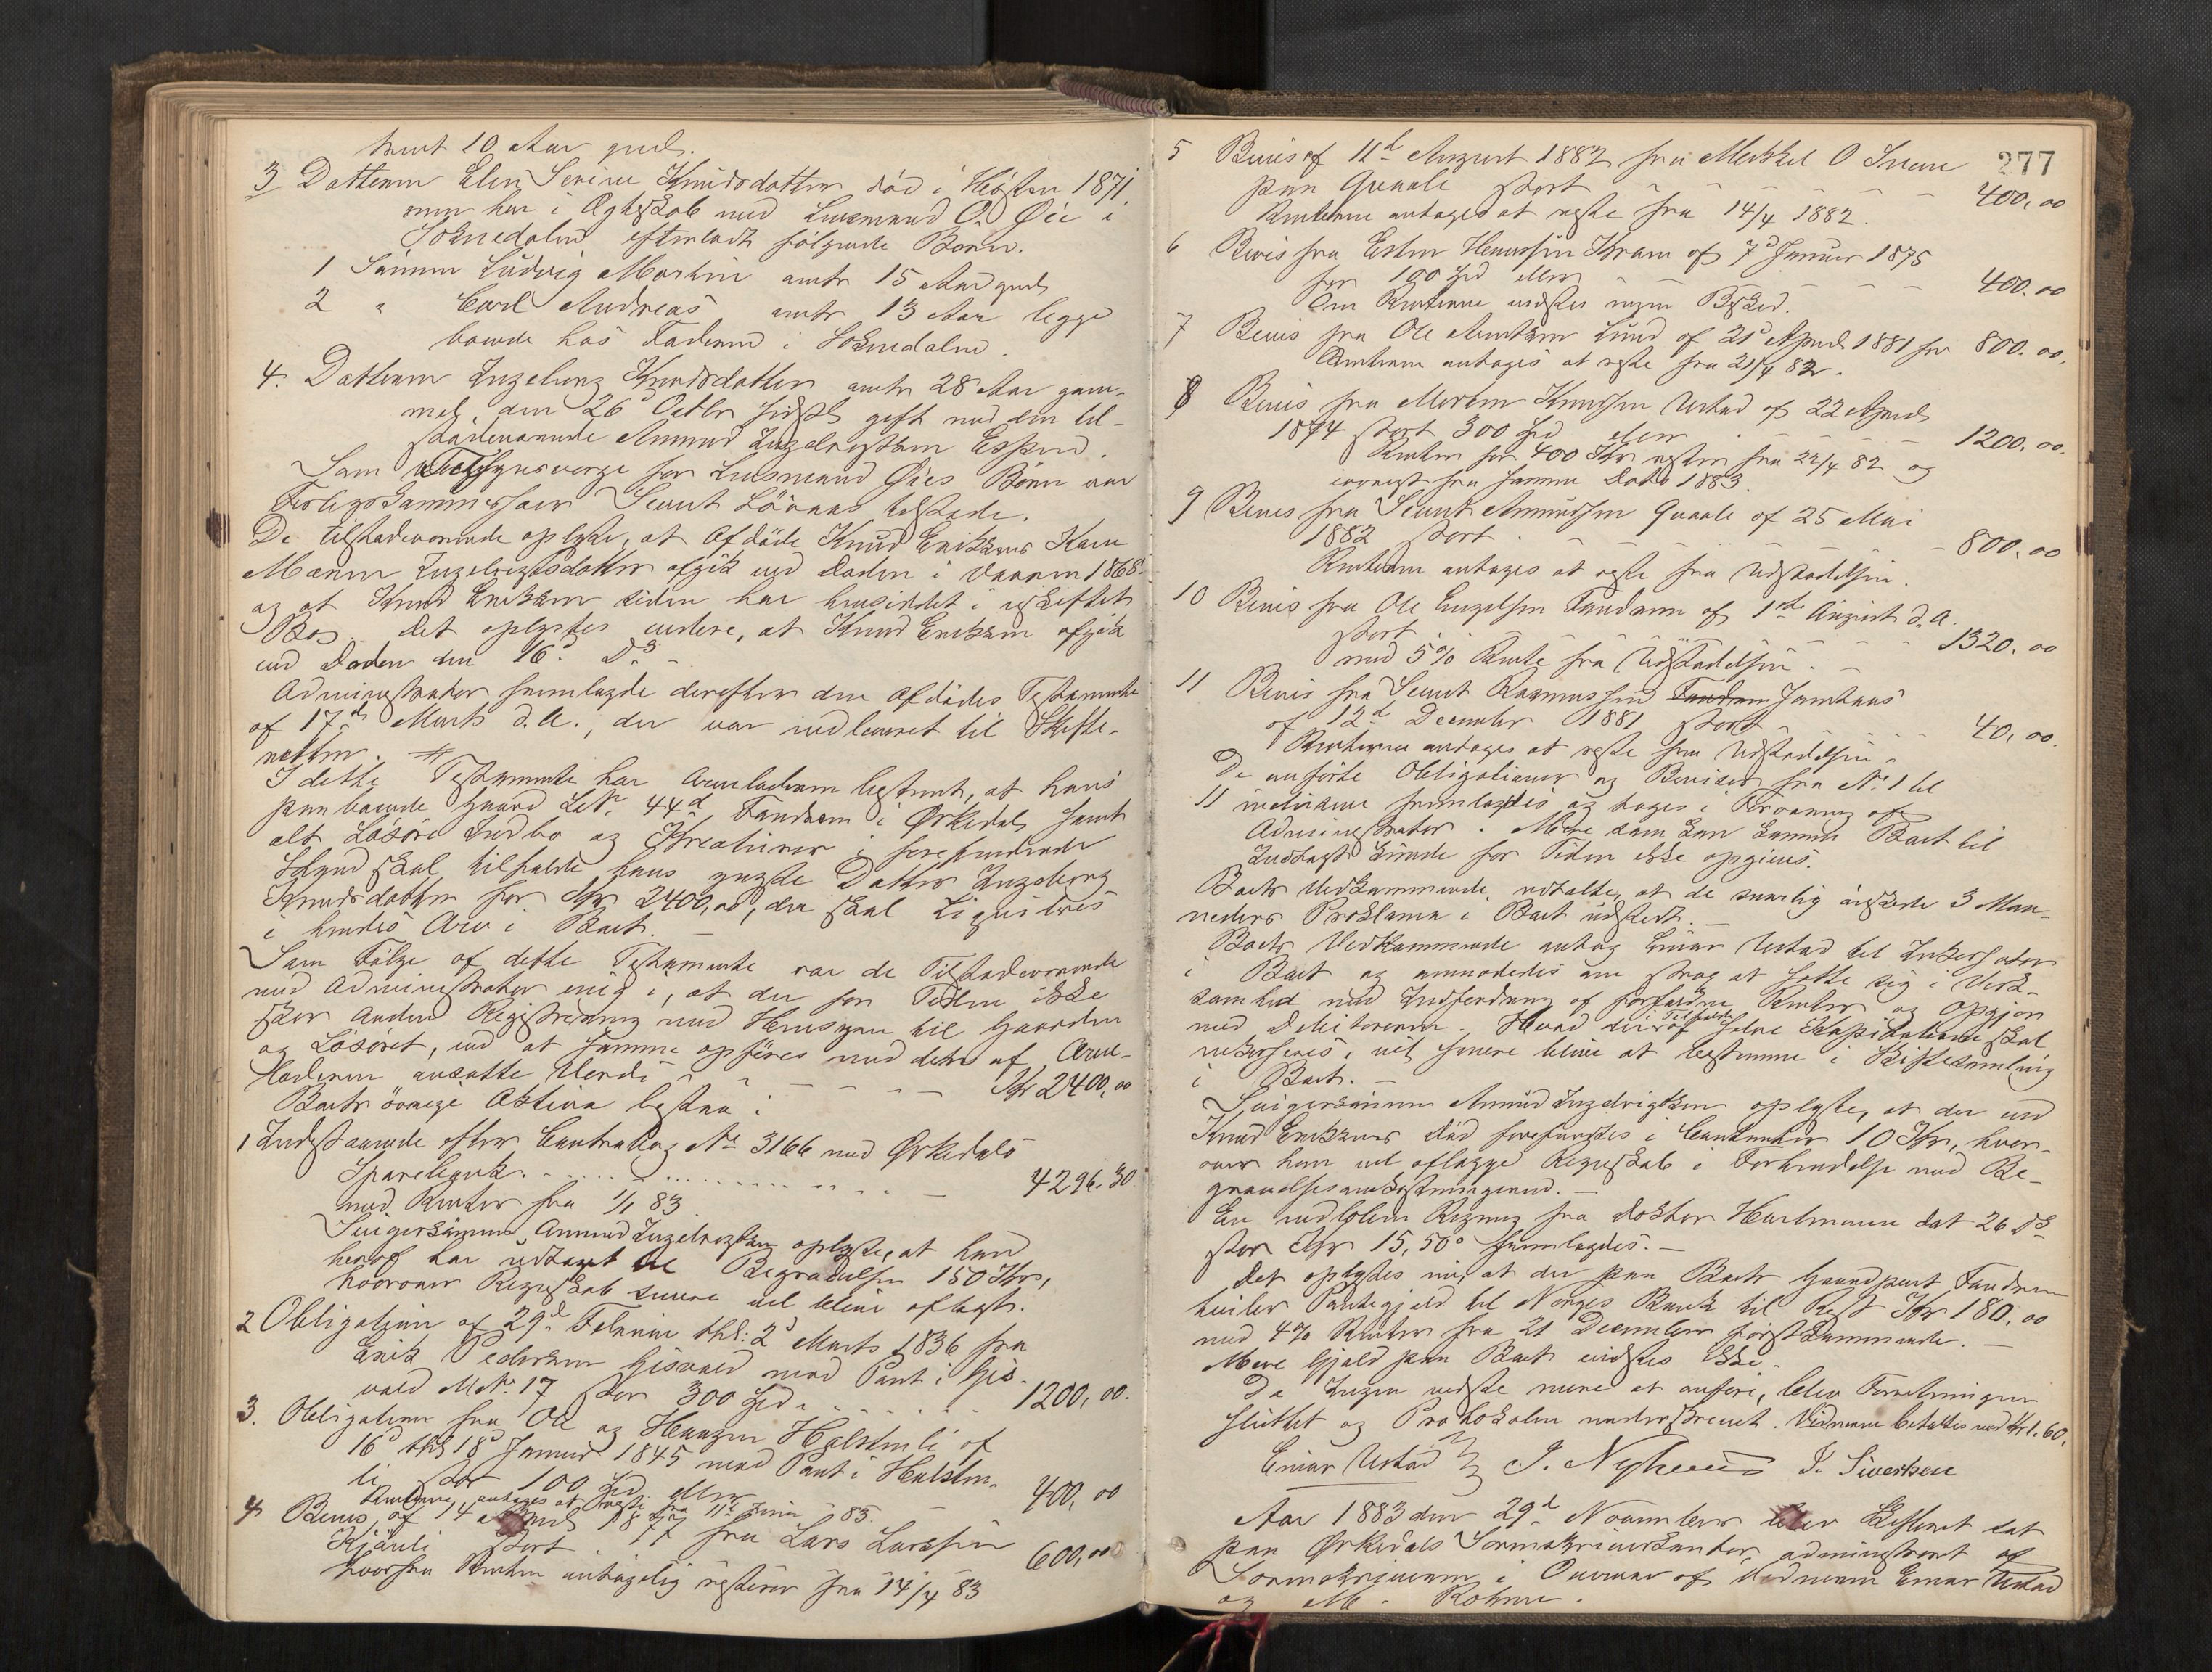 snart 10 Aar gml.
3 Datteren Elen Serine Knudsdatter død i Høsten 1871,
som har i Ægteskab med Lensmand O. Øie i
Soknedalen efterladt følgende Børn.
1 Sønnen Ludvig Martin omtr 15 Aar gml
2 " Carl Andreas omtr 13 Aar begge
boende hos Faderen i Soknedalen.
4. Datteren Ingeborg Knudsdatter omtr 28 Aar gam-
mel, den 26d Octbr sidstl gift med den til-
stædeværende Amund Ingebrigtsen Espen.
Som Tilsynsværge for Lensmand Øies Børn var
Forligskommissær Sivert Løvaas tilstede.
De tilstedeværende oplyste, at Afdøde Knud Eriksens Kone
Maren Ingebrigtsdatter afgik ved Døden i Vaaren 1868.
og at Knud Eriksen siden har hensiddet i uskiftet
Bo. Det oplystes videre, at Knud Eriksen afgik
ved Døden den 16d Ds.
Administrator fremlagde derefter den Afdødes Testamente
af 17d Marts d.A., der var indleveret til Skifte-
retten.
I dette Testamente har Arveladeren bestemt, at hans
paaboende Gaard L.Nr. 44d Fandrem i Ørkedal, samt
alt Løsøre Indbo og Kreaturer i forefindende
Stand skal tilfalde hans yngste Datter Ingeborg
Knudsdatter for Kr 2400,00, der skal Ligvideres
i hendes Arv i Boet.
Som Følge af dette Testamente var de Tilstedeværende
med Administrator enig i, at der for Tiden ikke
sker anden Registrering med Hensyn til Gaarden
og Løsøret, end at samme opføres med dets af Arve-
laderen ansatte Værdi Kr 2400,00
Boets øvrige Aktiva bestaa i:
1 Indestaaende efter Contrabog No 3166 med Ørkedals
Sparebank. 4296.30
med Renter fra 1/1 83
Svigersønnen Amund Ingebrigtsen oplyste, at han
heraf har udtaget til Begravelsen 150 Kr,
hvorover Regnskab senere vil blive aflagt.
2 Obligation af 29d Februar thl: 2d Marts 1836 fra
Erik Pedersen Gisvold med Pant i Gis-
vold M.No. 17 stor 300 Spd. 1200,00.
3. Obligation fra Ole og Haagen Halstenli af
16d thl 18d Januar 1845 med Pant i Halsten-
li stor 100 Spd. eller 400,00
Renterne antages at reste fra 11te Juni 83.
4 Bevis af 14 April 1877 fra Lars Larssen
Kjøvli stort 600,00
hvorfra Renten antagelig resterer fra 14/4 83
277
5 Bevis af 11d August 1882 fra Mekkel O Sneve
paa Qvaale stort 400,00
Renterne antages at reste fra 14/4 1882.
6 Bevis fra Esten Henrssen Kram af 7d Januar 1875
for 100 Spd eller 400.00
Om Renterne vidstes ingen Besked.
7 Bevis fra Ole Arntsen Lund af 21d April 1881 for 800.00.
Renterne antages at reste fra 21/4 82.
8 Bevis fra Morten Knudsen Ustad af 22 April
1874 stort 300 Spd eller 1200,00.
Renter for 400 Kr rester fra 22/4 82 og
iøvrigt fra samme Dato 1883.
9 Bevis fra Sivert Amundsen Qvaale af 25 Mai
1882 stort 800,00
Renterne antages at reste fra Udstedelsen.
10 Bevis fra Ole Engelsen Fandrem af 1ste August d.A.
stort 1320.00
med 5% Rente fra Udstedelsen.
11 Bevis fra Sivert Rasmussen Fandrem
af 12d December 1881 stort 40,00.
Renterne antages at reste fra Udstedelsen.
De anførte Obligationer og Beviser fra No 1 til
11 inclusive fremlagdes og toges i Forvaring af
Administrator. Mere som kan komme Boet til
Indtægt kunde for Tiden ikke opgives.
Boets Vedkommende udtalte, at de snarlig ønskede 3 Maa-
neders Proklama i Boet udstedt.
Boets Vedkommende antog Einar Ustad til Inkassator
i Boet og anmodedes om strax at sætte sig i Virk-
somhed med Indfordring af forfaldne Renter og Opgjør
med Debitorerne. Hvad der af selve Kapitalerne skal
inkasseres, vil senere blive at bestemme i Skiftesamling
i Boet.
Svigersønnen Amund Ingebrigtsen oplyste, at der ved
Knud Eriksens Død forefandtes i Contanter 10 Kr, hvor-
over han vil aflægge Regnskab i Forbindelse med Be-
gravelsesomkostningerne.
En indløben Regning fra Doktor Hartmann dat 26 Ds
stor Kr 15,50 fremlagdes.
Det oplystes nu, at der paa Boets Gaardpart Fandrem
hviler Pantegjæld til Norges Bank til Rest Kr 180.00
med 4% Renter fra 21 December førstkommende.
Mere Gjæld paa Boet vidstes ikke.
Da Ingen vidste mere at anføre, blev Forretningen
sluttet og Protokolen underskrevet. Vidnerne betaltes med Kr 1.60.
Einar Ustad J. Nyhuus I. Sivertsen
Aar 1883 den 29d November blev Skifteret sat
paa Ørkedals Sorenskriverkontor, administreret af
Sorenskriveren i Overvær af Vidnerne Einar Ustad
og M. Rohme.